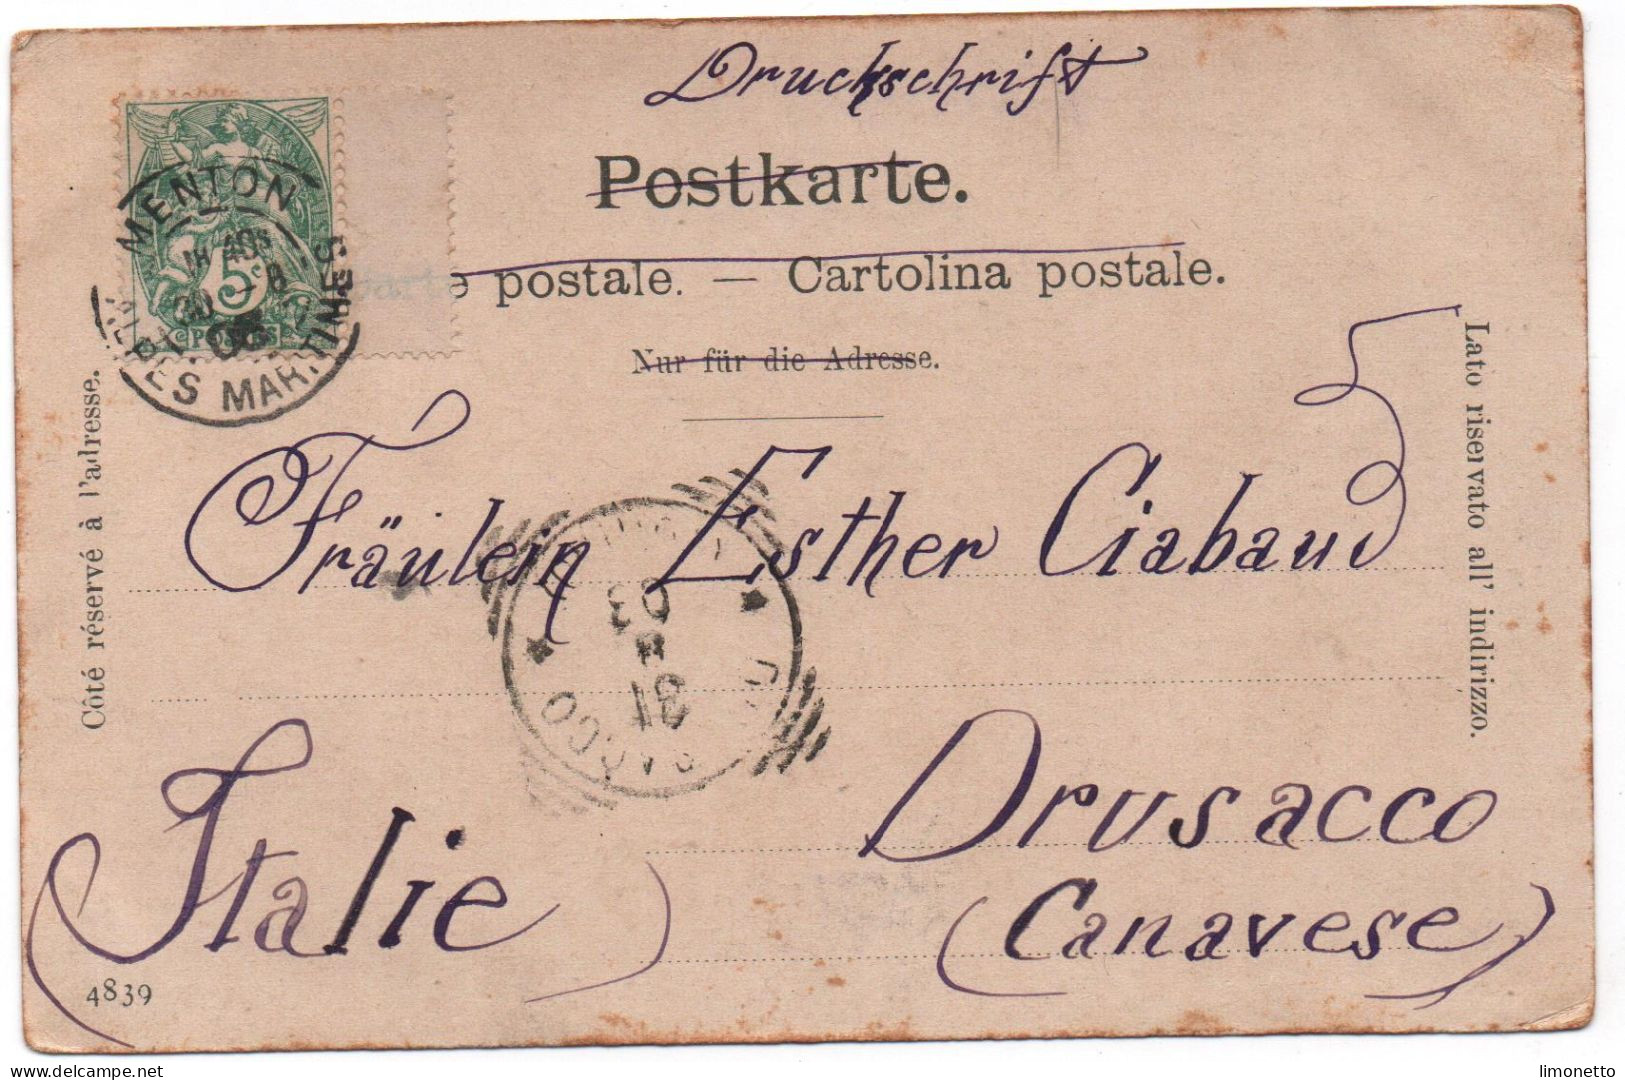 Druckschrift
Postkarte.
e postale. — Cartolina postale.
Nur für die Adresse.
MENTON
5c
POSTES
ES MARITIMES
Côté réservé à l'adresse.
Lato riservato all' indirizzo.
Fräulein Esther Ciabaud
31
8
03
Drusacco
(Canavese)
Italie
4839
limonetto